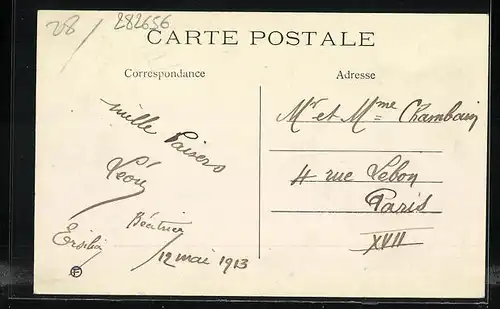 28 / 282656
CARTE POSTALE
Correspondance
mille baisers
Léon
Béatrice
12 mai 1913
Adresse
Mr et Mme Chambaux
4 rue Lebon
Paris
XVII